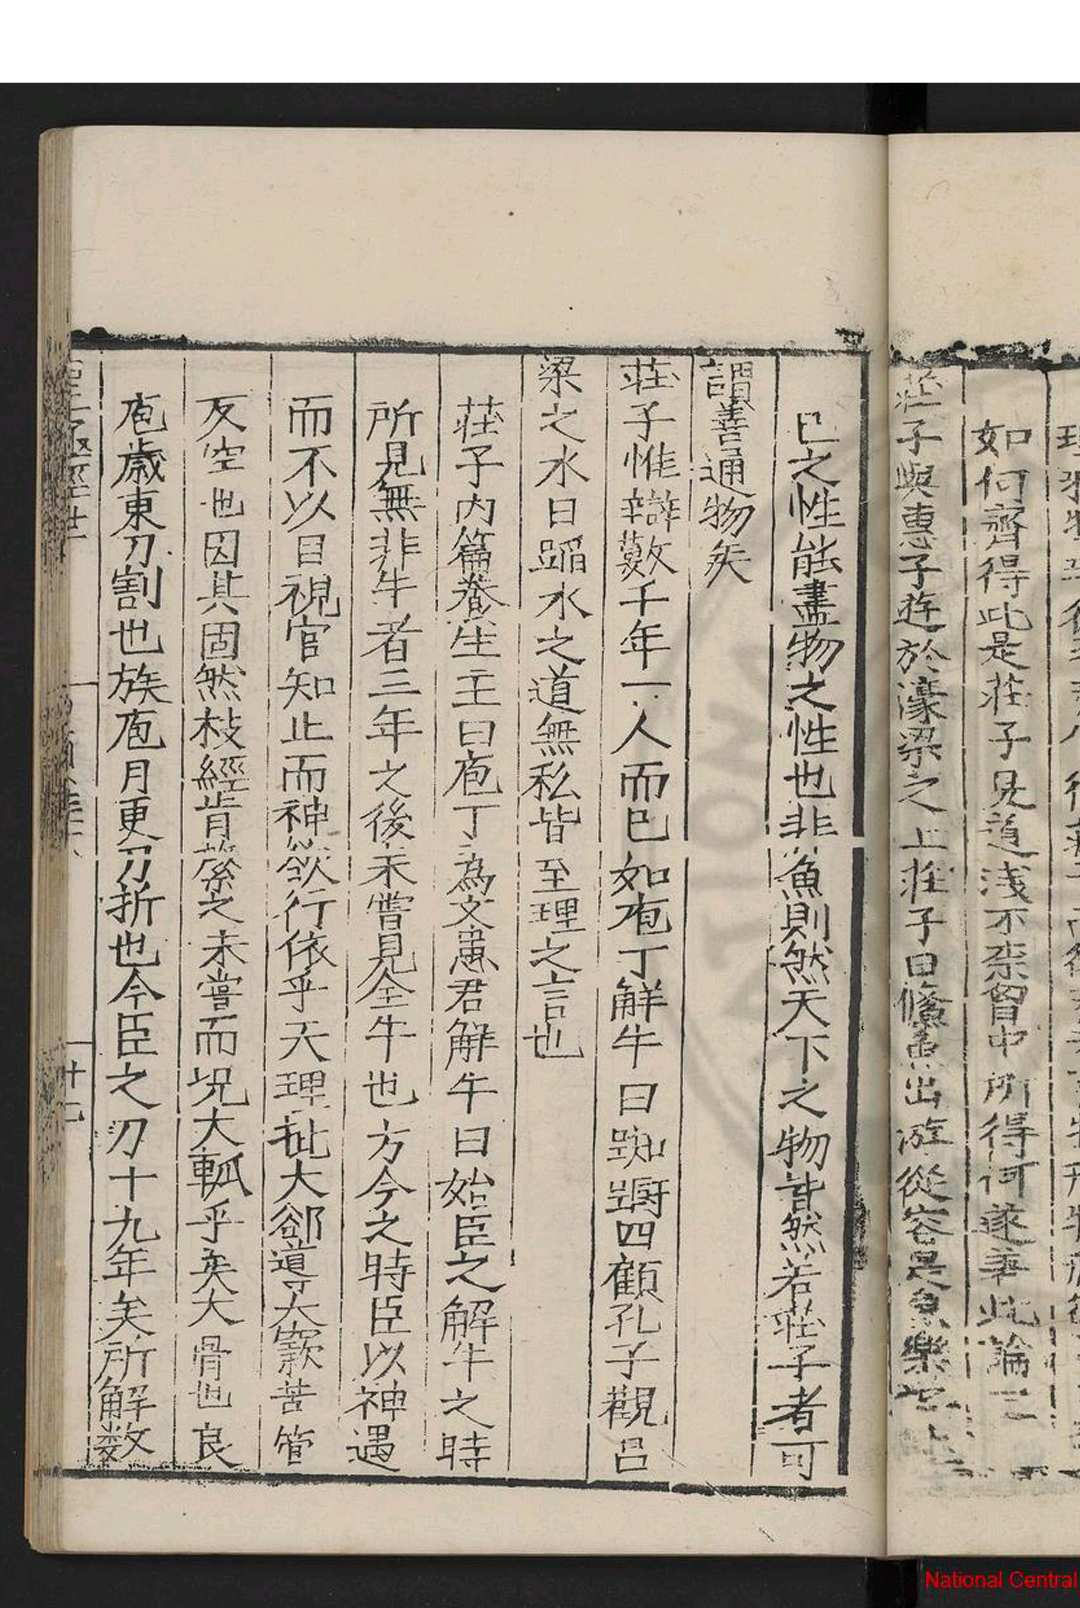 如何齊得此是莊子見道淺不柰胷中所得何遂著此論三
莊子與惠子遊於濠梁之上莊子曰鯈魚出游從容是魚樂
己之性能盡物之性也非魚則然天下之物皆然若莊子者可
謂善通物矣
莊子惟辯數千年一人而已如庖丁解牛曰踟躕四顧孔子觀呂
梁之水曰蹈水之道無私皆至理之言也
莊子内篇養生主曰庖丁為文惠君解牛曰始臣之解牛之時
所見無非牛者三年之後未嘗見全牛也方今之時臣以神遇
而不以目視官知止而神欲行依乎天理批大郤導大窾苦管
反空也因其固然枝經肯綮之未嘗而况大軱乎奚大骨也良
庖歲更刀割也族庖月更刀折也今臣之刀十九年矣所解数
National Central